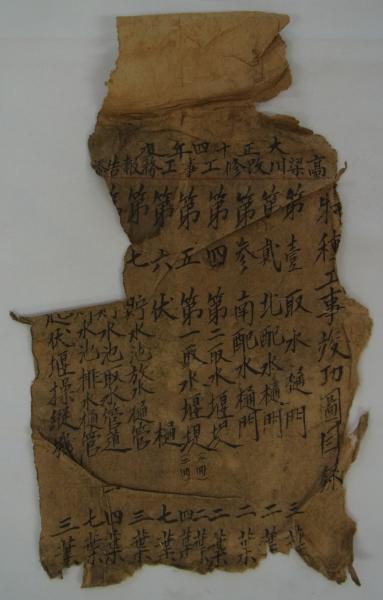 大正十四年度
高梁川改修工事工務報告
特種工事竣功圖目録
第壹 取水樋門 三葉
第貳 北配水樋門 二葉
第參 南配水樋門 二葉
第四 第二取水堰堤 二葉
第五 第一取水堰堤 四葉
第六 伏樋 七葉
第七 貯水池放水樋管 三葉
第 貯水池取水管道 四葉
水池排水樋管 七葉
伏堰操縦 三葉